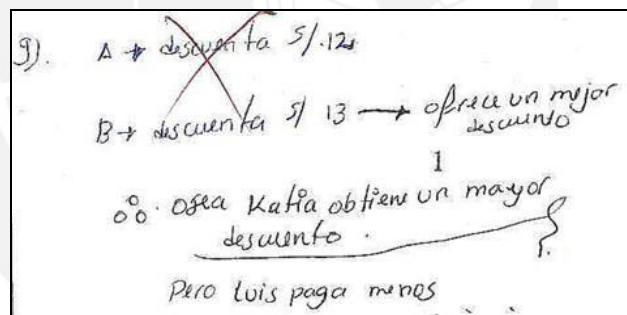 9). A → descuenta S/.12
B → descuenta S/ 13 → ofrece un mejor
descuento
1
osea Katia obtiene un mayor
descuento.
Pero Luis paga menos